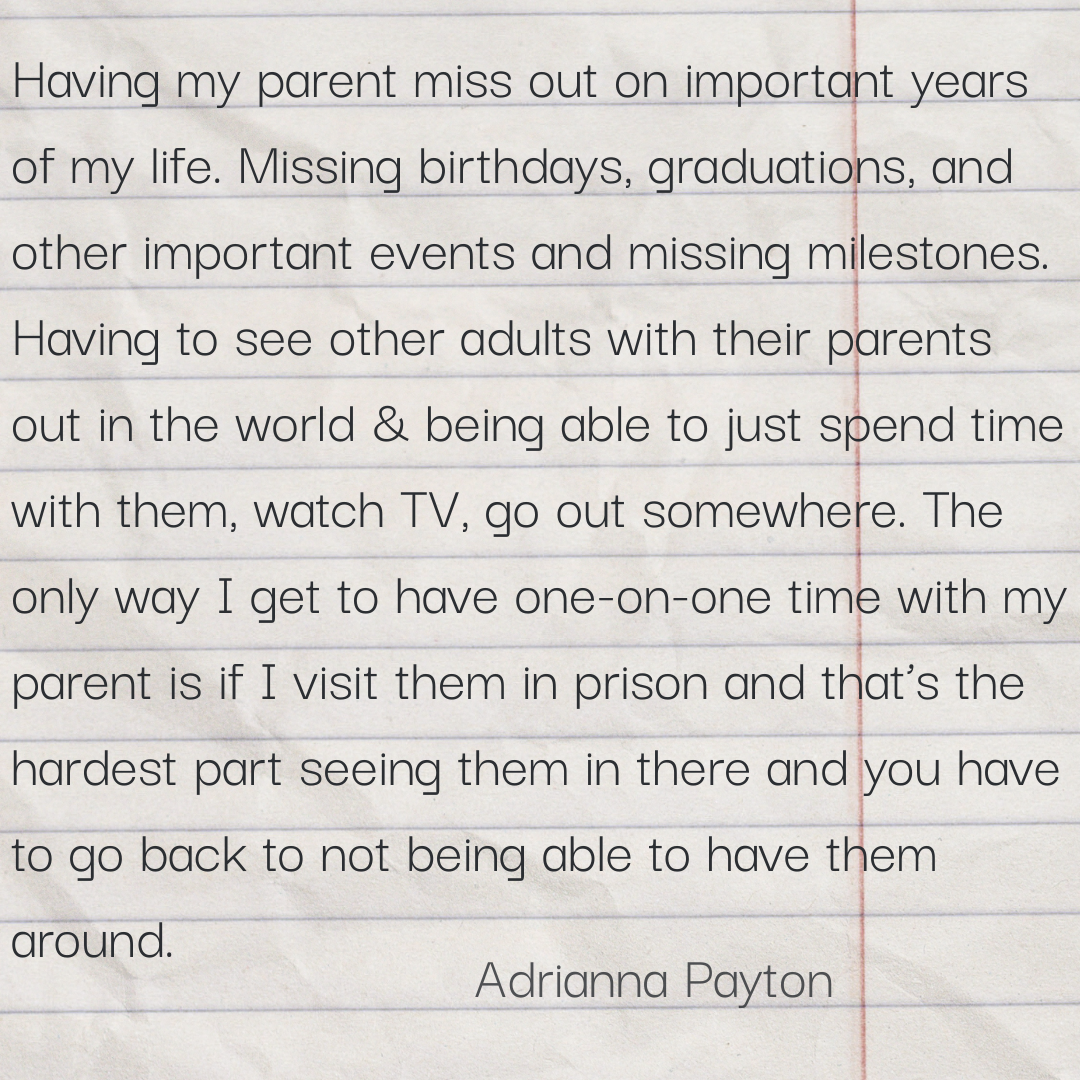 Having my parent miss out on important years
of my life. Missing birthdays, graduations, and
other important events and missing milestones.
Having to see other adults with their parents
out in the world & being able to just spend time
with them, watch TV, go out somewhere. The
only way I get to have one-on-one time with my
parent is if I visit them in prison and that’s the
hardest part seeing them in there and you have
to go back to not being able to have them
around.
Adrianna Payton